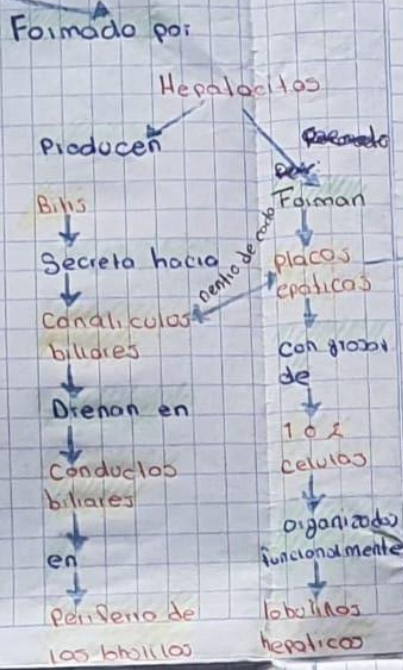 Formado por
Hepatocitos
Producen
Bilis
Secreta hacia
canaliculos
biliares
Drenan en
conductos
biliares
en
Periferia de
los lobulillos
dentro de cada
Forman
placas
epaticas
con grosor
de
1 o 2
celulas
organizados
funcionalmente
lobulillos
hepaticos